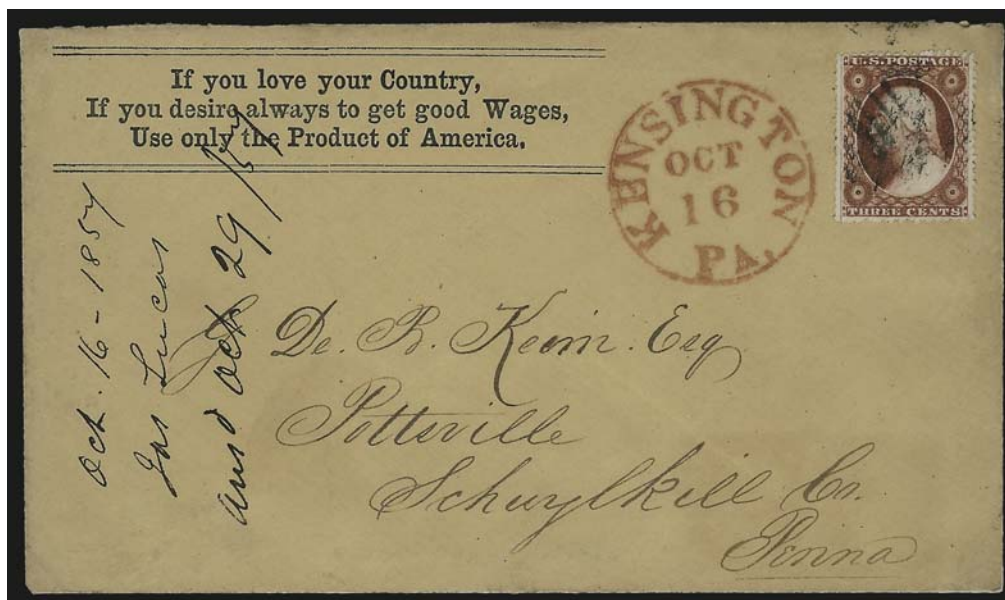 If you love your Country,
If you desire always to get good Wages,
Use only the Product of America.
KENSINGTON
OCT
16
PA.
U.S. POSTAGE
THREE CENTS
Oct. 16 - 1857
Jas Lucas
ansd Oct 29 /57
De. B. Keim. Esq
Pottsville
Schuylkill Co.
Penna